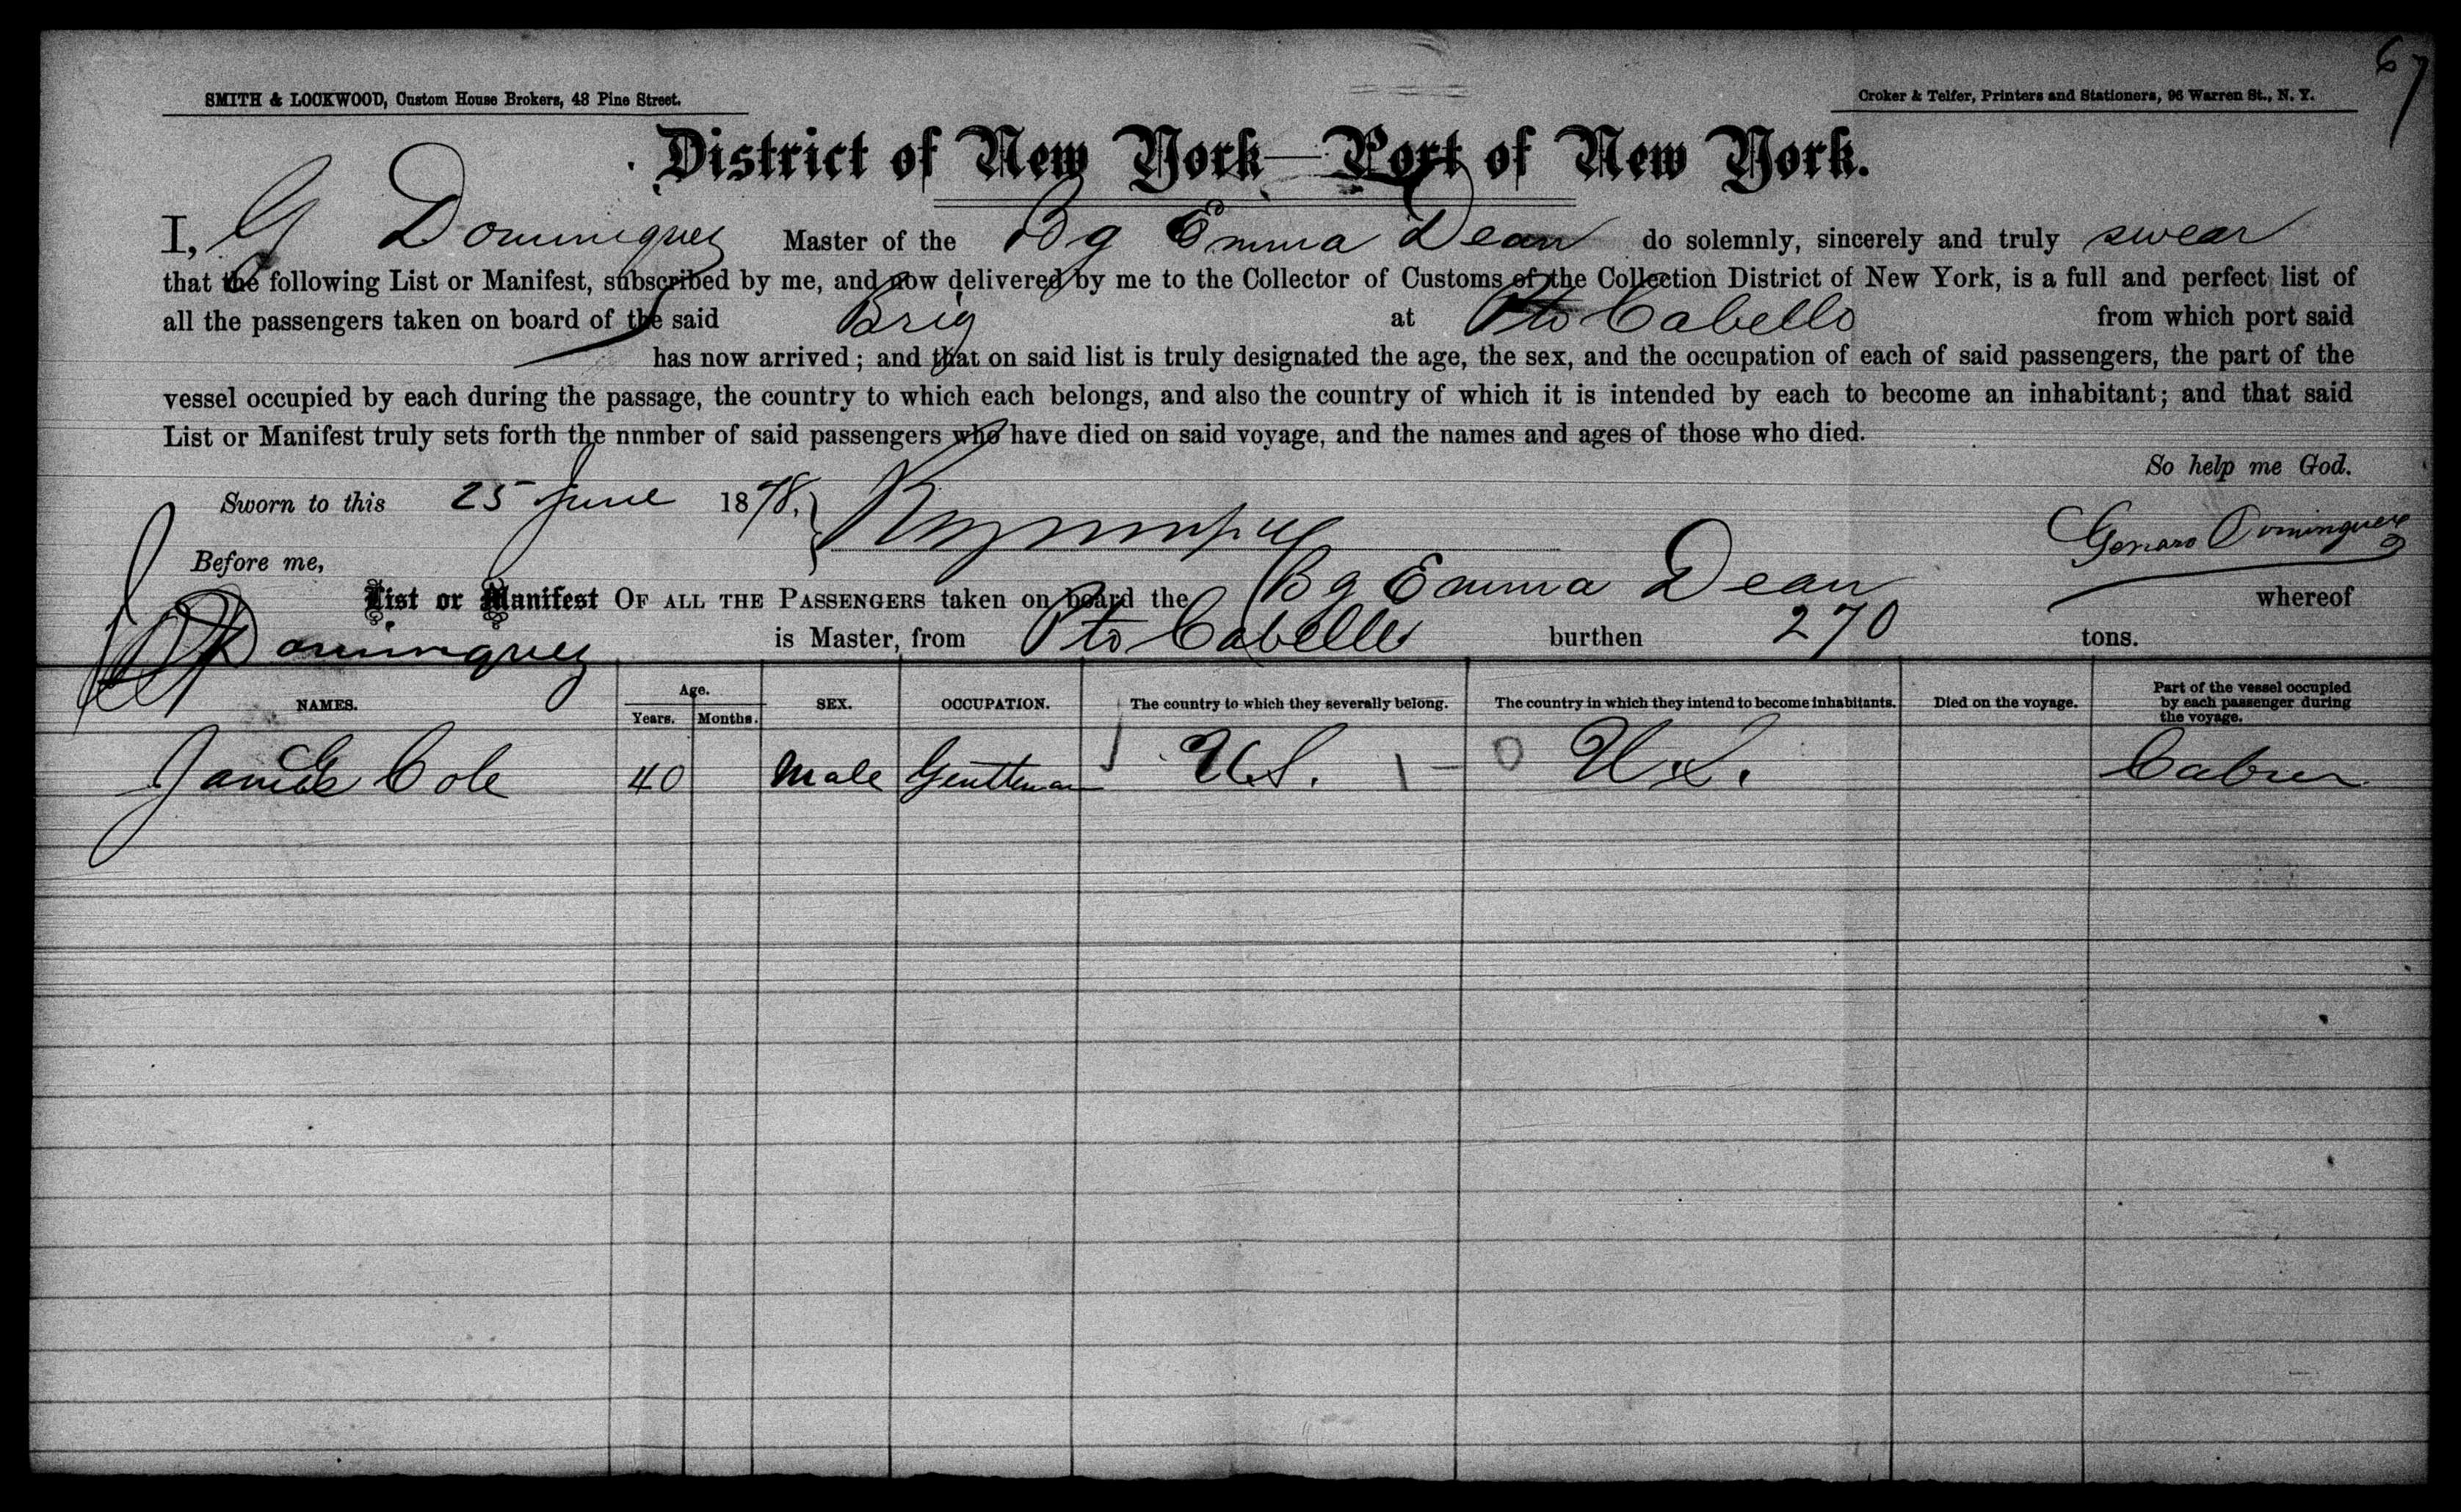 67
SMITH & LOCKWOOD, Custom House Brokers, 48 Pine Street.
Croker & Telfer, Printers and Stationers, 96 Warren St., N. Y.
District of New York—Port of New York.
I, G Dominguez Master of the Bg Emma Dean do solemnly, sincerely and truly swear
that the following List or Manifest, subscribed by me, and now delivered by me to the Collector of Customs of the Collection District of New York, is a full and perfect list of
all the passengers taken on board of the said Brig at Pto Cabello from which port said
has now arrived; and that on said list is truly designated the age, the sex, and the occupation of each of said passengers, the part of the
vessel occupied by each during the passage, the country to which each belongs, and also the country of which it is intended by each to become an inhabitant; and that said
List or Manifest truly sets forth the nnmber of said passengers who have died on said voyage, and the names and ages of those who died.
So help me God.
Sworn to this 25 June 1878.
Genaro Dominguez
Before me,
List or Manifest OF ALL THE PASSENGERS taken on board the Bg Emma Dean whereof
Dominguez is Master, from Pto Cabello burthen 270 tons.
NAMES. Age. Years. Months. SEX. OCCUPATION. The country to which they severally belong. The country in which they intend to become inhabitants. Died on the voyage. Part of the vessel occupied by each passenger during the voyage.
Cole 40 Male Gentleman U.S. 1 – 0 U.S. Cabin